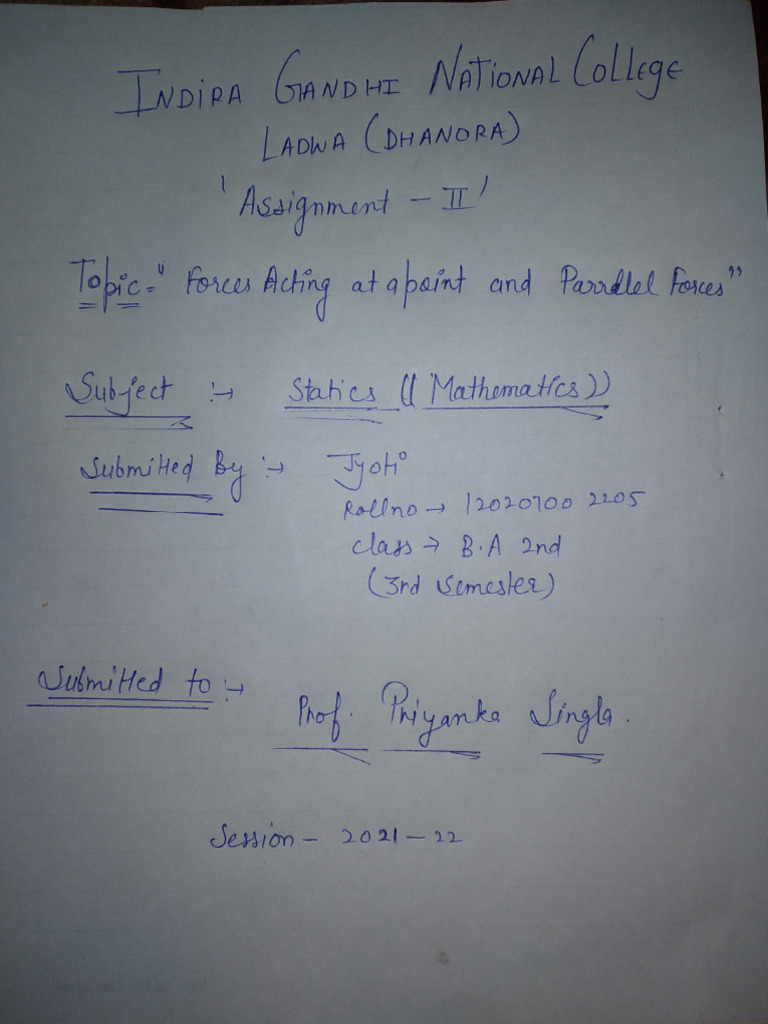 INDIRA GANDHI NATIONAL COLLEGE
LADWA (DHANORA)
'Assignment - II'
Topic = " Forces Acting at a point and Parrallel Forces"
Subject :→ Statics (( Mathematics ))
Submitted By :→ Jyoti
Rollno → 120207002205
class → B.A 2nd
(3rd Semester)
Submitted to :→
Prof. Priyanka Singla.
Session - 2021-22